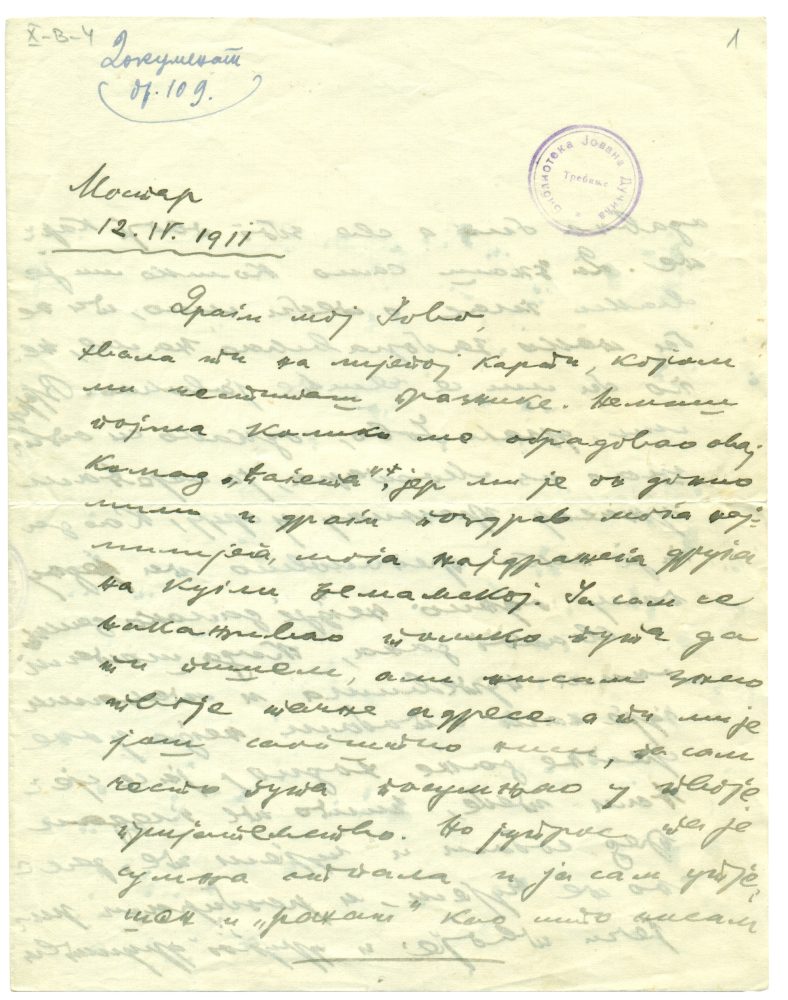 X-В-4
1
Документ
бр. 109.
Библиотека Јована Дучића
Требиње
Мостар
12. IV. 1911
Драги мој Јово,
хвала ти на лијепој карти, којом
ми честиташ празнике. Немаш
појма колико ме обрадовао овај
комад јер ми је он донио
мили и драги поздрав мога нај-
милијег, мога најдражега друга
на кугли земаљској. Ја сам се
накањивао толико пута да
ти пишем, али нисам знао
твоје тачне адресе а ти ми је
још саопштио ниси, па сам
често пута посумњао у твоје
пријатељство. Но јутрос та је
сумња отпала и ја сам утје-
шен и као што нисам